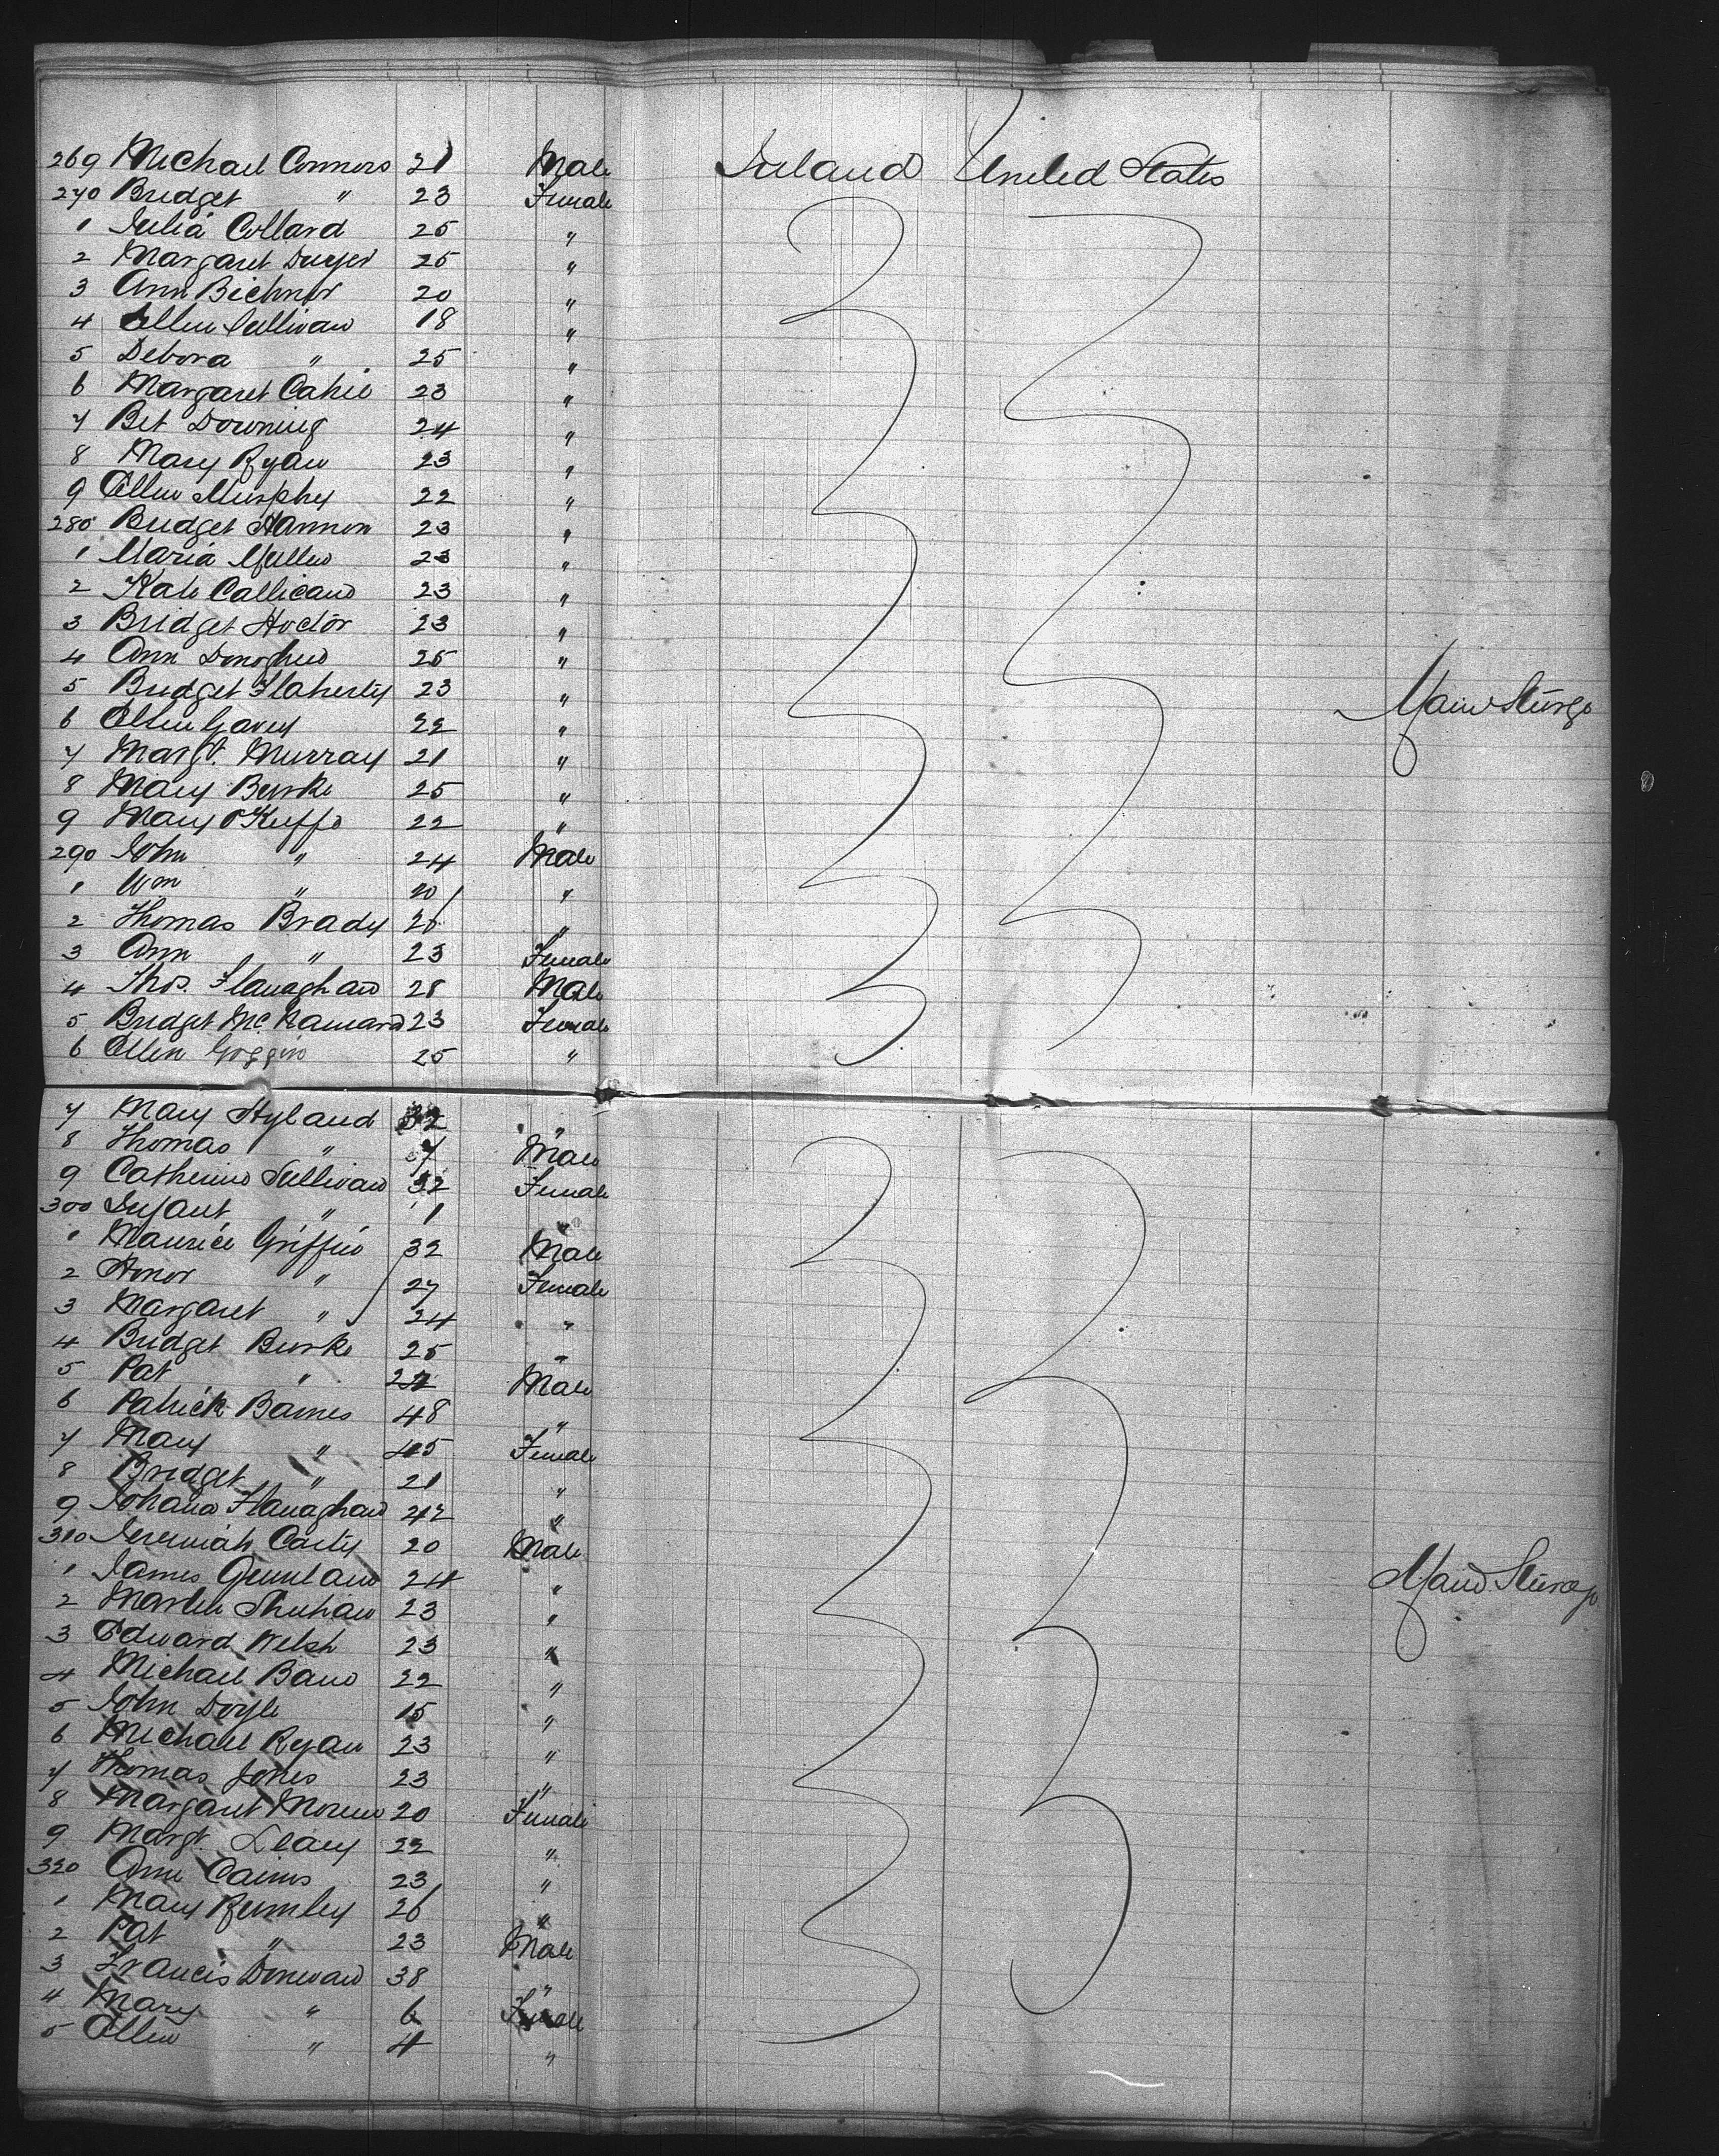 269 Michael Connors 21 Male Ireland United States
270 Bridget " 23 Female
1 Julia Collard 25 "
2 Margaret Dwyer 25 "
3 Ann 20 "
4 Ellen Sullivan 18 "
5 Debora " 25 "
6 Margaret Cahil 23 "
7 Bet Downing 24 "
8 Mary Ryan 23 "
9 Ellen Murphy 22 "
280 Bridget Hannon 23 "
1 Maria Mullen 23 "
2 Kate 23 "
3 Bridget Hoctor 23 "
4 Ann Donoghue 25 "
5 Bridget Flaherty 23 "
6 Ellen Garvey 22 "
7 Margt. Murray 21 "
8 Mary Burke 25 "
9 Mary O'Keeffe 22 "
290 John " 24 Male
1 Wm " 20 "
2 Thomas Brady 26 "
3 Ann " 23 Female
4 Thos. Flanaghan 28 Male
5 Bridget McNamara 23 Female
6 Ellen Goggin 25 "
7 Mary Hyland 32 "
8 Thomas " 7 Male
9 Catherine Sullivan 32 Female
300 Infant " 1 "
1 Maurice Griffin 32 Male
2 Honor " 27 Female
3 Margaret " 24 "
4 Bridget Burke 25 "
5 Pat " Male
6 Patrick Barnes 48 "
7 Mary " 45 Female
8 Bridget " 21 "
9 Johana Flanaghan 42 "
310 Jeremiah Carty 20 Male
1 James Quinlan 24 "
2 Martin Shehan 23 "
3 Edward Welsh 23 "
4 Michael 22 "
5 John Doyle 15 "
6 Michael Ryan 23 "
7 Thomas Jones 23 "
8 Margaret 20 Female
9 Margt. Leary 22 "
320 Ann Cairns 23 "
1 Mary Rumley 26 "
2 Pat " 23 Male
3 Francis Donovan 38 "
4 Mary " 6 Female
5 Ellen " 4 "